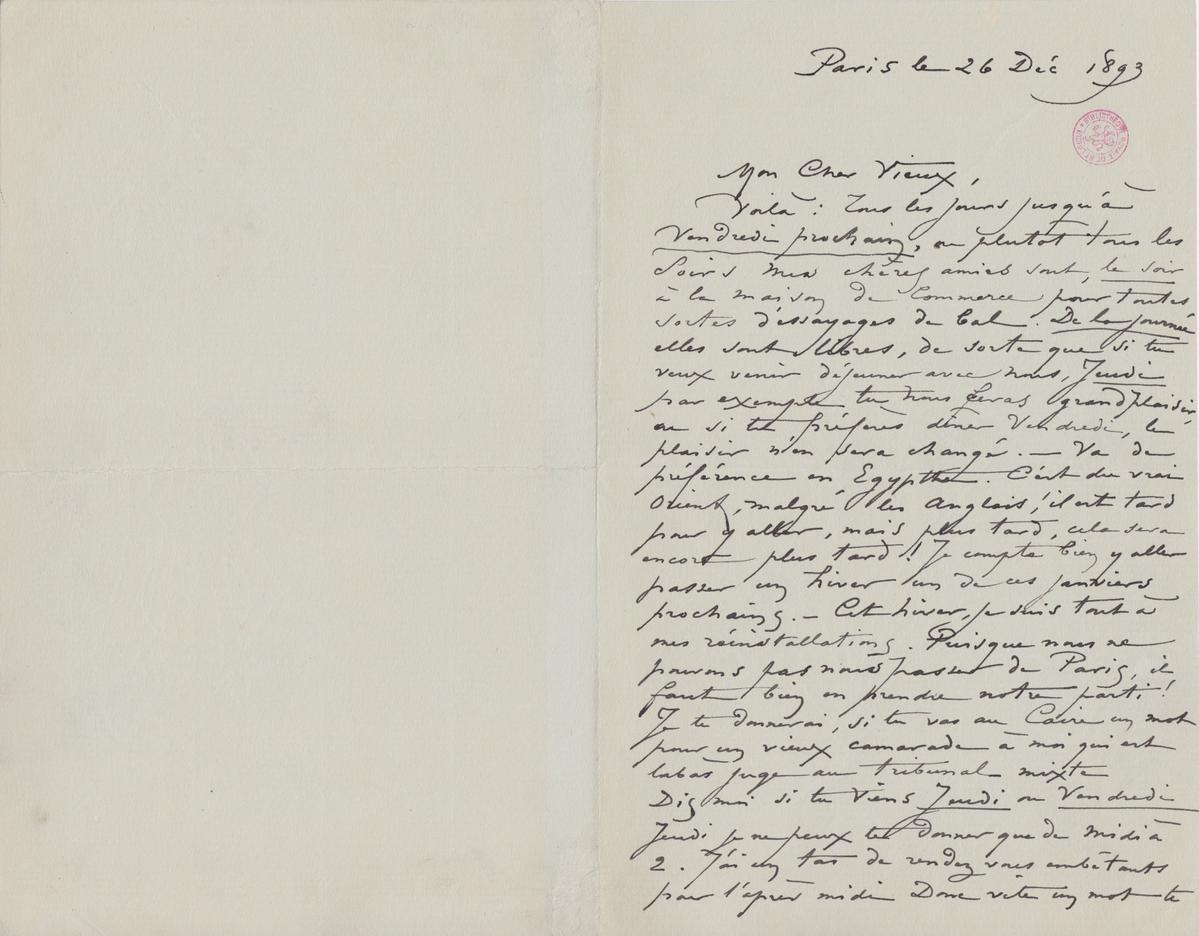 Paris le 26 Déc 1893
BIBLIOTHÈQUE ROYALE DE BELGIQUE
Mon Cher Vieux,
Voilà : Tous les jours jusqu'à
Vendredi prochain, ou plutot tous les
Soirs mes chères amies sont, le soir
à la maison de Commerce pour toutes
sortes d'essayages de bal. De la journée
elles sont libres, de sorte que si tu
veux venir déjeuner avec nous, Jeudi
par exemple tu nous feras grand plaisir,
ou si tu préfères dîner Vendredi, le
plaisir n'en sera changé. — Va de
préférence en Egypthe. C'est du vrai
Orient, malgré les Anglais ! il est tard
pour y aller, mais plus tard, cela sera
encore plus tard ! Je compte bien y aller
passer un hiver un de ces janviers
prochains. — Cet hiver, je suis tout à
mes réinstallations. Puisque nous ne
pouvons pas nous passer de Paris, il
faut bien en prendre notre parti !
Je te donnerai, si tu vas au Caire un mot
pour un vieux camarade à moi qui est
labas juge au tribunal mixte
Dis moi si tu viens Jeudi ou Vendredi
Jeudi je ne peux te donner que de midi à
2. J'ai un tas de rendez vous embêtants
pour l'après midi Donc vite un mot te